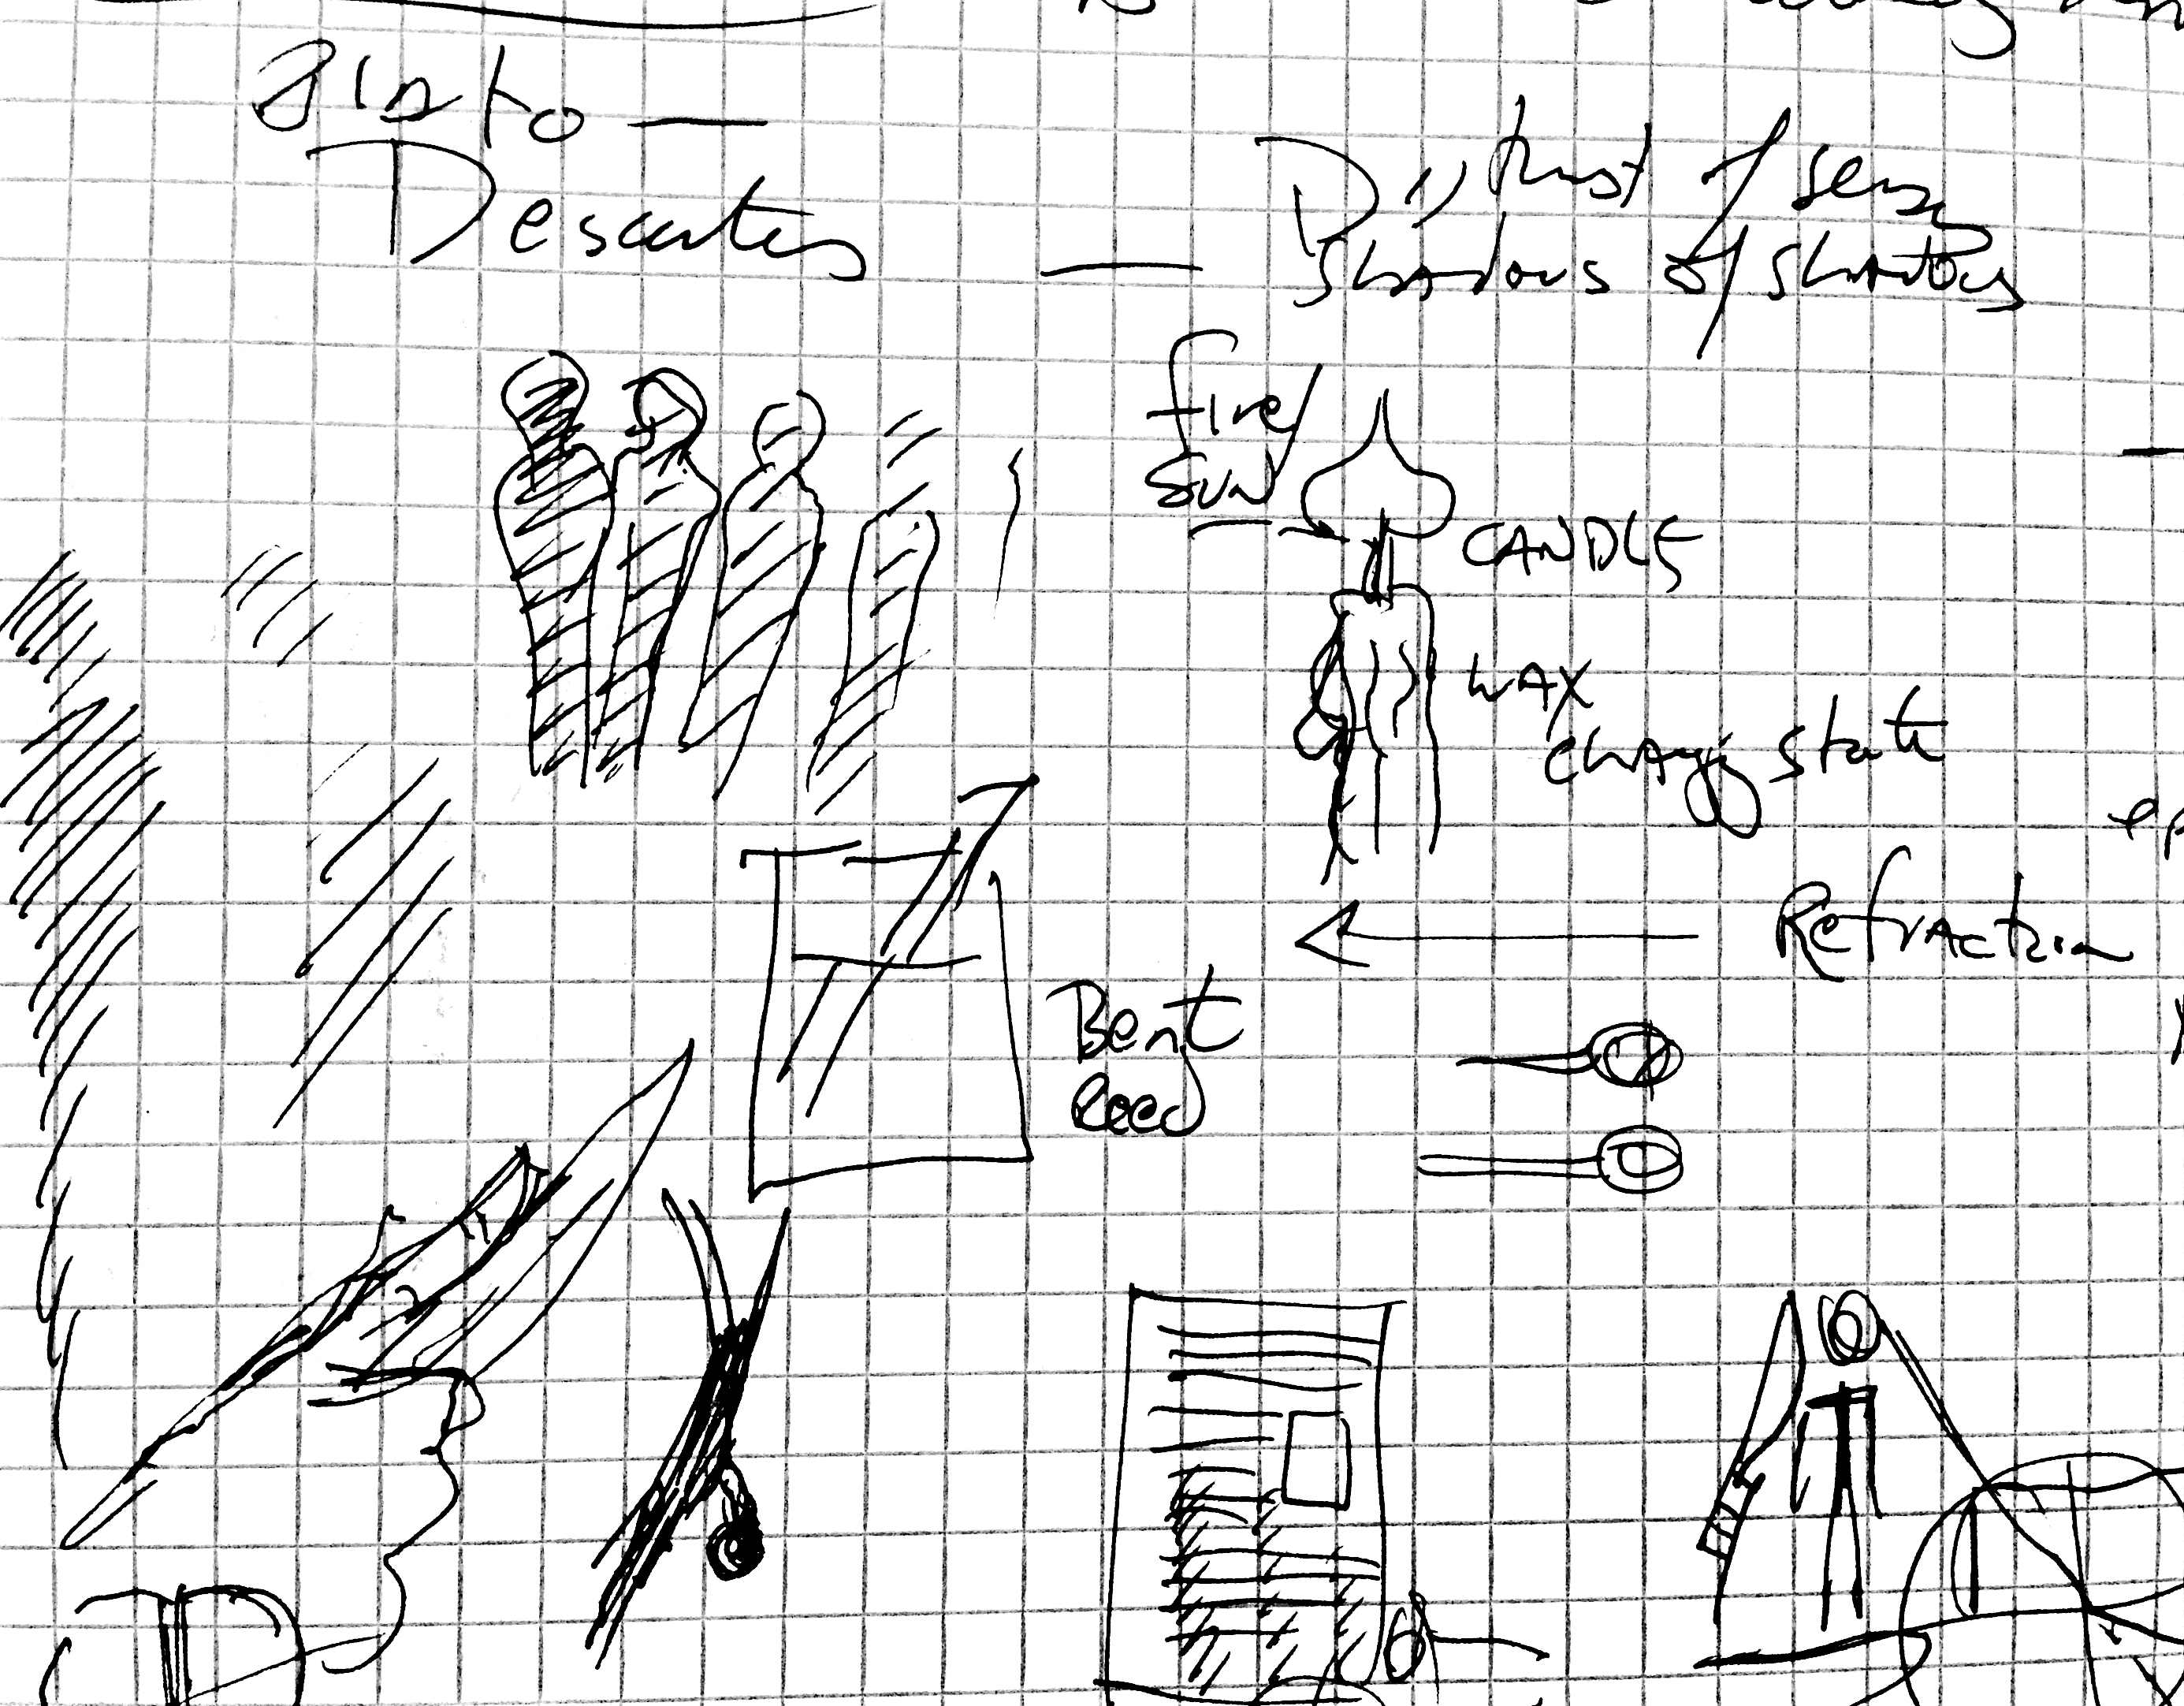 Plato —
Descartes
— Distrust of sense
Shadows of shadows
fire/
sun
CANDLE
WAX
change state
Refraction
Bent
Reed